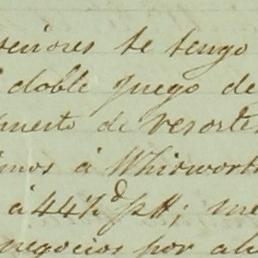 señores se tengo
doble juego de
puesto de resortes
imos á Whitworth
á 44½ d p#; me
negocios por ah